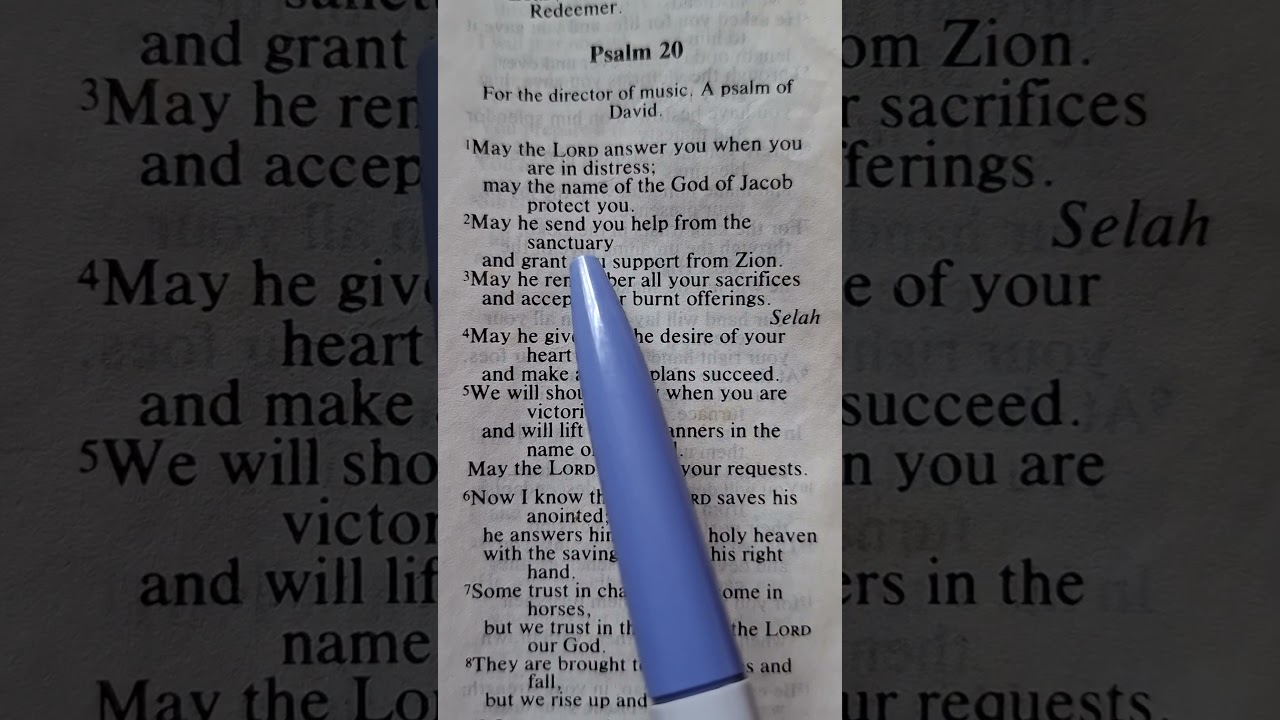 Redeemer.
Psalm 20
For the director of music. A psalm of
David.
1May the LORD answer you when you
are in distress;
may the name of the God of Jacob
protect you.
2May he send you help from the
sanctuary
and grant support from Zion.
3May he all your sacrifices
and burnt offerings.
Selah
4May he desire of your
heart
and make plans succeed.
5We will when you are
and will lift in the
name
May the LORD your requests.
6Now I know saves his
anointed;
he answers holy heaven
with the saving his right
hand.
7Some trust in in
horses,
but we trust in the LORD
our God.
8They are brought and
fall,
but we rise up and